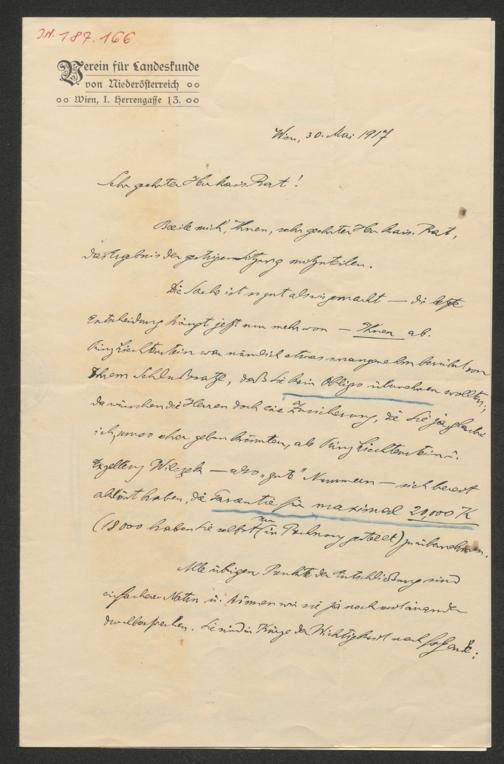 I.N. 187.166
Verein für Landeskunde
von Niederösterreich
Wien, I. Herrengasse 13.
Wien, 30. Mai 1917
Sehr geehrter Herr kais. Rat!
Beeile mich, Ihnen, sehr geehrter Herr kais. Rat,
das Ergebnis der gestrigen Sitzung mitzuteilen.
Die Sache ist so gut als wie gemacht — die letzte
Entscheidung hängt jetzt nur mehr von — Ihnen ab.
Prinz Liechtenstein war nämlich etwas unangenehm berührt von
Ihrem Schlußsatze, daß Sie kein Obligo übernehmen wollten;
da wünschen die Herren doch eine Zusicherung, die Sie ja, glaube
ich, umso eher geben könnten, als Prinz Liechtenstein u.
Exzellenz Wilczek — also "gute" Nummern — sich bereit
erklärt haben, die Garantie für maximal 20,000 K
(18000 haben Sie selbst nur in Rechnung gestellt) zu übernehmen.
Alle übrigen Punkte der Entschließung sind
einfacherer Natur u. können wir sie ja noch
Sie sind in Kürze der Wichtigkeit nach folgende: